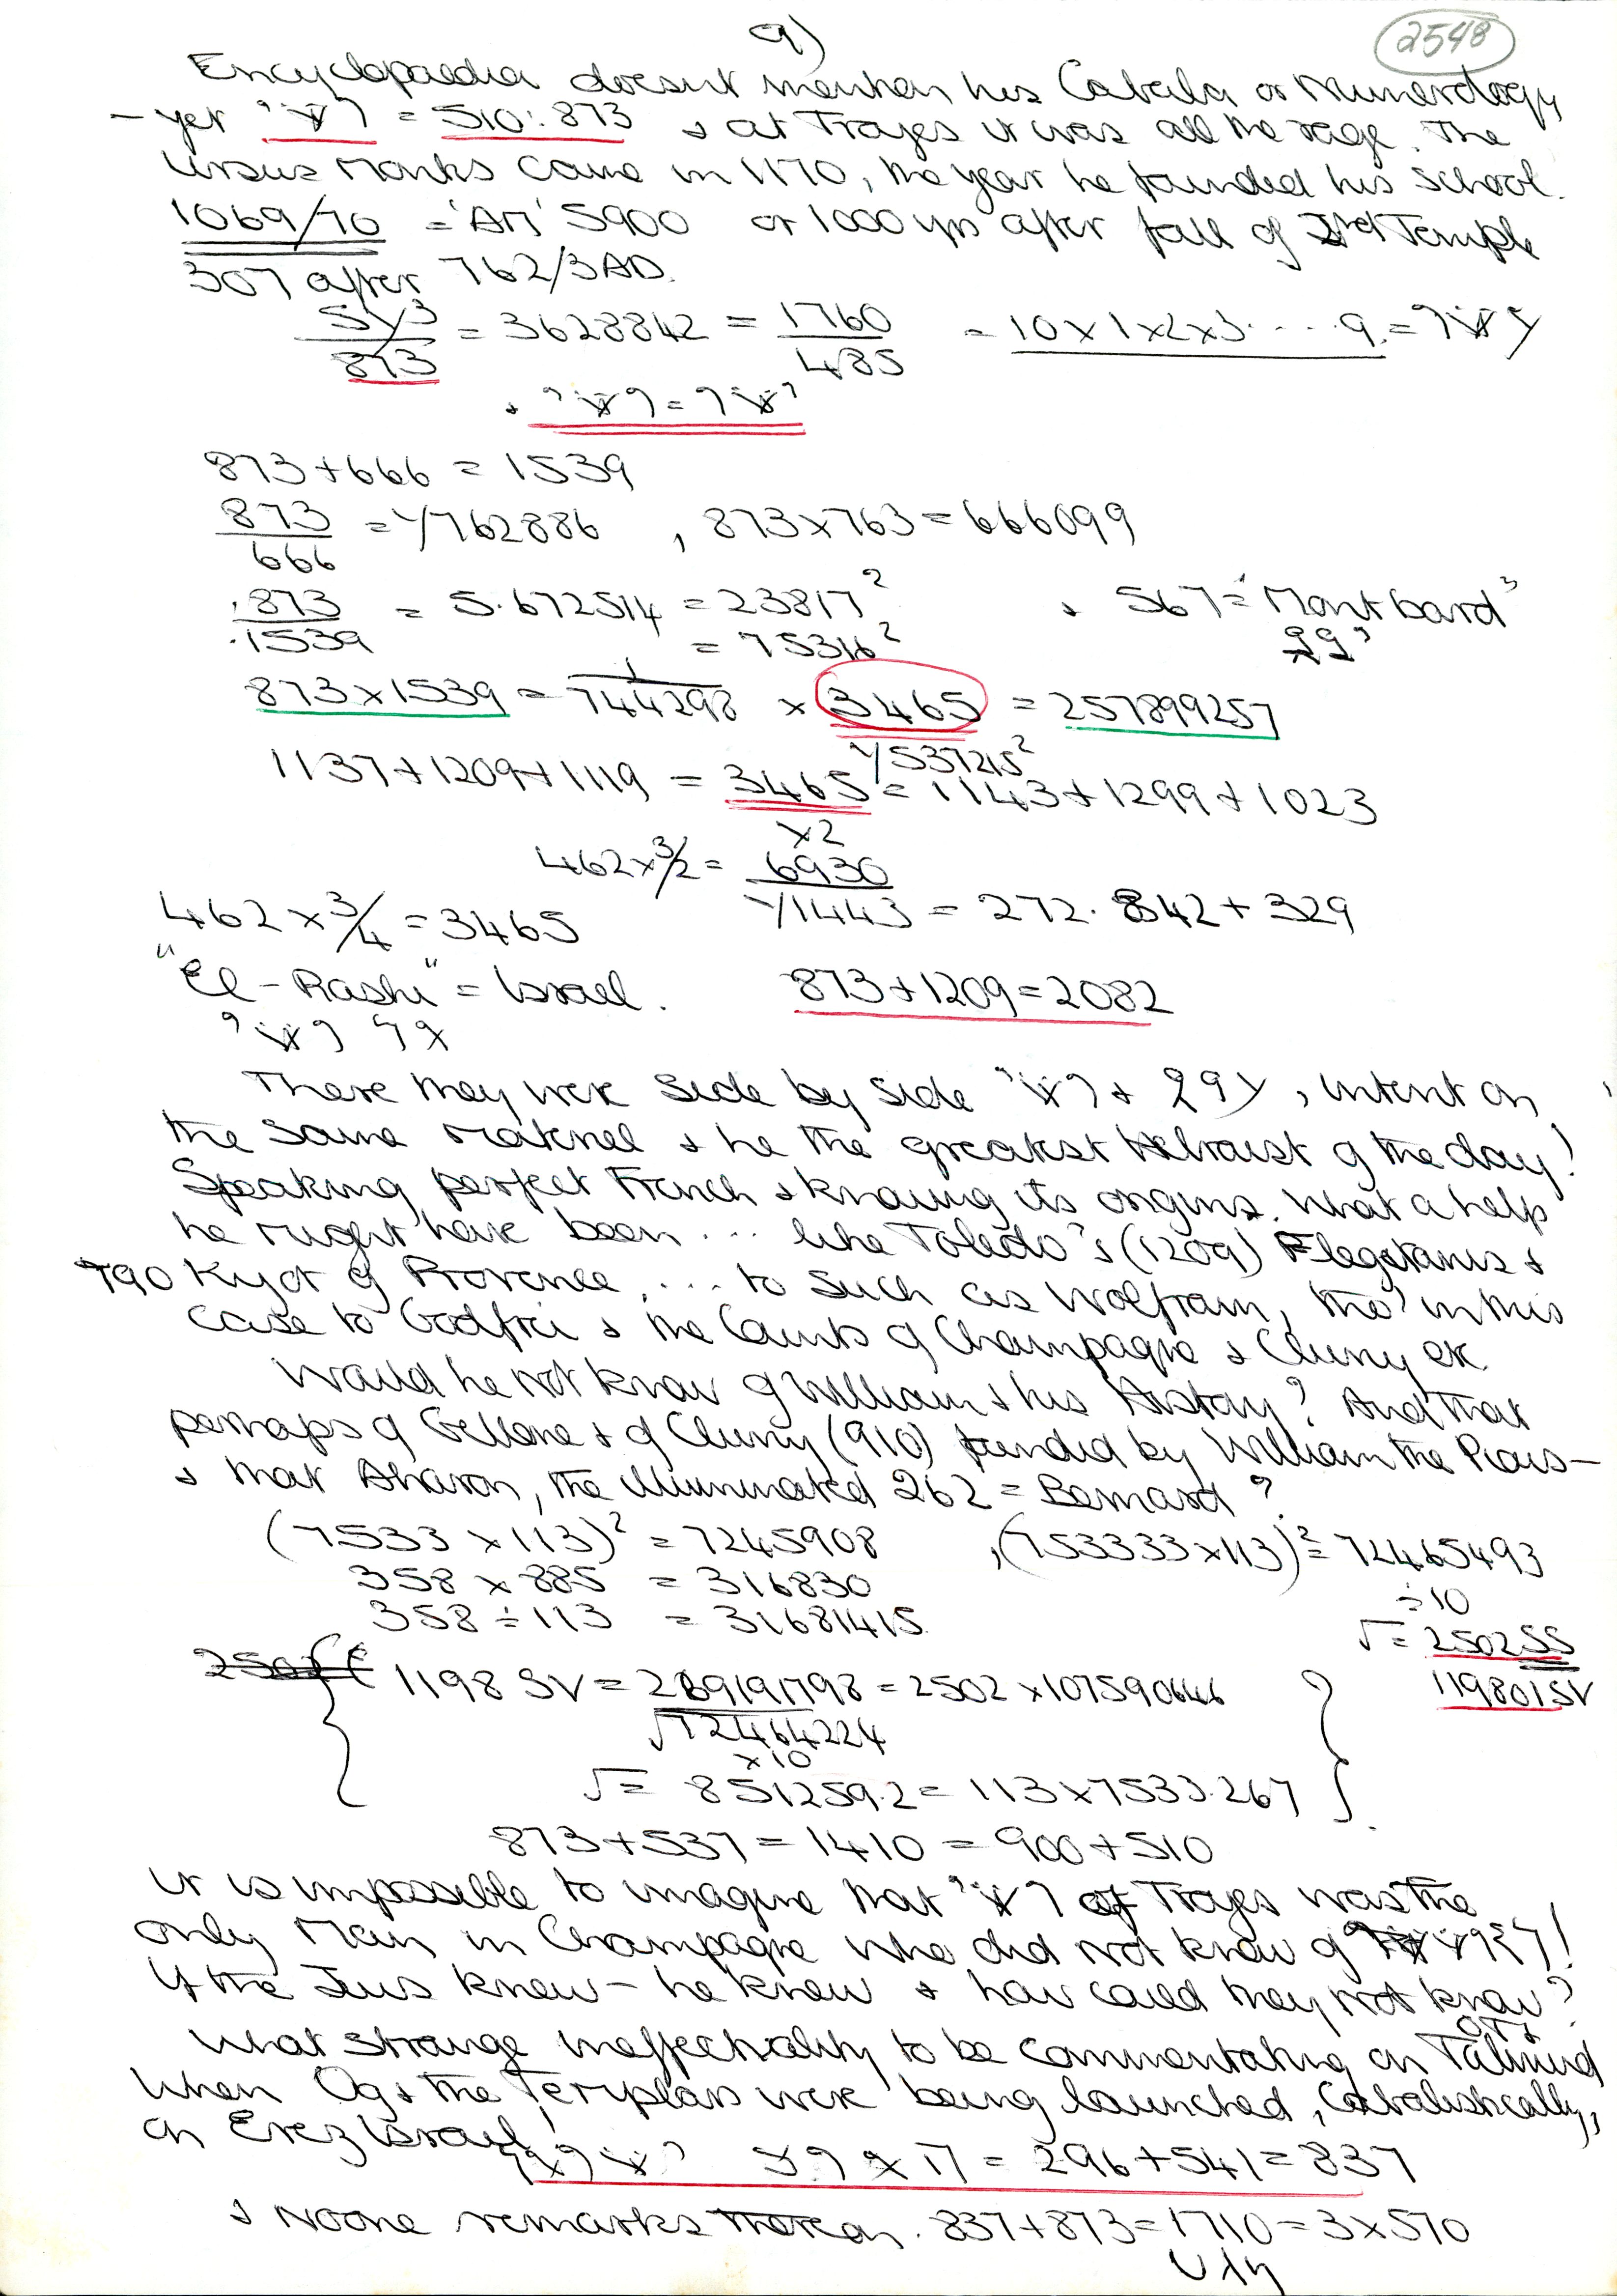 9)
2548
Encyclopaedia doesnt mention his Cabala or Numerology
– yet רשי = 510 : 873 & at Troyes it was all the rage. The
Ursus Monks came in 1170, the year he founded his school.
1069/70 = 'AM' 5900 or 1000 yrs after fall of 2nd Temple
307 after 762/3 AD.
= 3628842 = 1760/485 = 10 x 1 x 2 x 3 .... 9. =
873
873 + 666 = 1539
873/666 = 1/762886 , 873 x 763 = 666099
.873/.1539 = 5.672514 = 23817² & 567 = 'Montbard'
= 75316²
873 x 1539 = 1/744298 x 3465 = 257899257
1/537215²
1137 + 1209 + 1119 = 3465 = 1143 + 1299 + 1023
x2
462 x 3/2 = 6930
462 x 3/4 = 3465 1/1443 = 272. 842 + 329
"El – Rashi" = Israel. 873 + 1209 = 2082
There they were side by side & , intent on
the same material & he the greatest Hebraist of the day!
Speaking perfect French & knowing its origins. What a help
he might have been ... like Toledo's (1209) Flegetanis &
790 Kyot of Provence, ... to such as Wolfram, tho' in this
case to Godfroi & the Counts of Champagne & Cluny etc.
Would he not know of William & his History? And that
perhaps of Gellone & of Cluny (910) funded by William the Pious –
& that Aharon, the illuminated 262 = Bernard?
(7533 x 113)² = 7245908 , (753333 x 113)² = 72465493
358 x 885 = 316830 ÷ 10
358 ÷ 113 = 31681415 √ = 250255
1198 SV = 269191798 = 2502 x 107590646 119801SV
√72464224
x10
√ = 851259.2 = 113 x 7533.267
873 + 537 = 1410 = 900 + 510
it is impossible to imagine that רשי of Troyes was the
only Man in Champagne who did not know of !
If the Jews knew – he knew & how could they not know?
What strange ineffectuality to be commentating on Talmud
when Og & the Templars were being launched, Cabalistically,
on Erez Israel!
= 296 + 541 = 837
& Noone remarks thereon. 837 + 873 = 1710 = 3 x 570